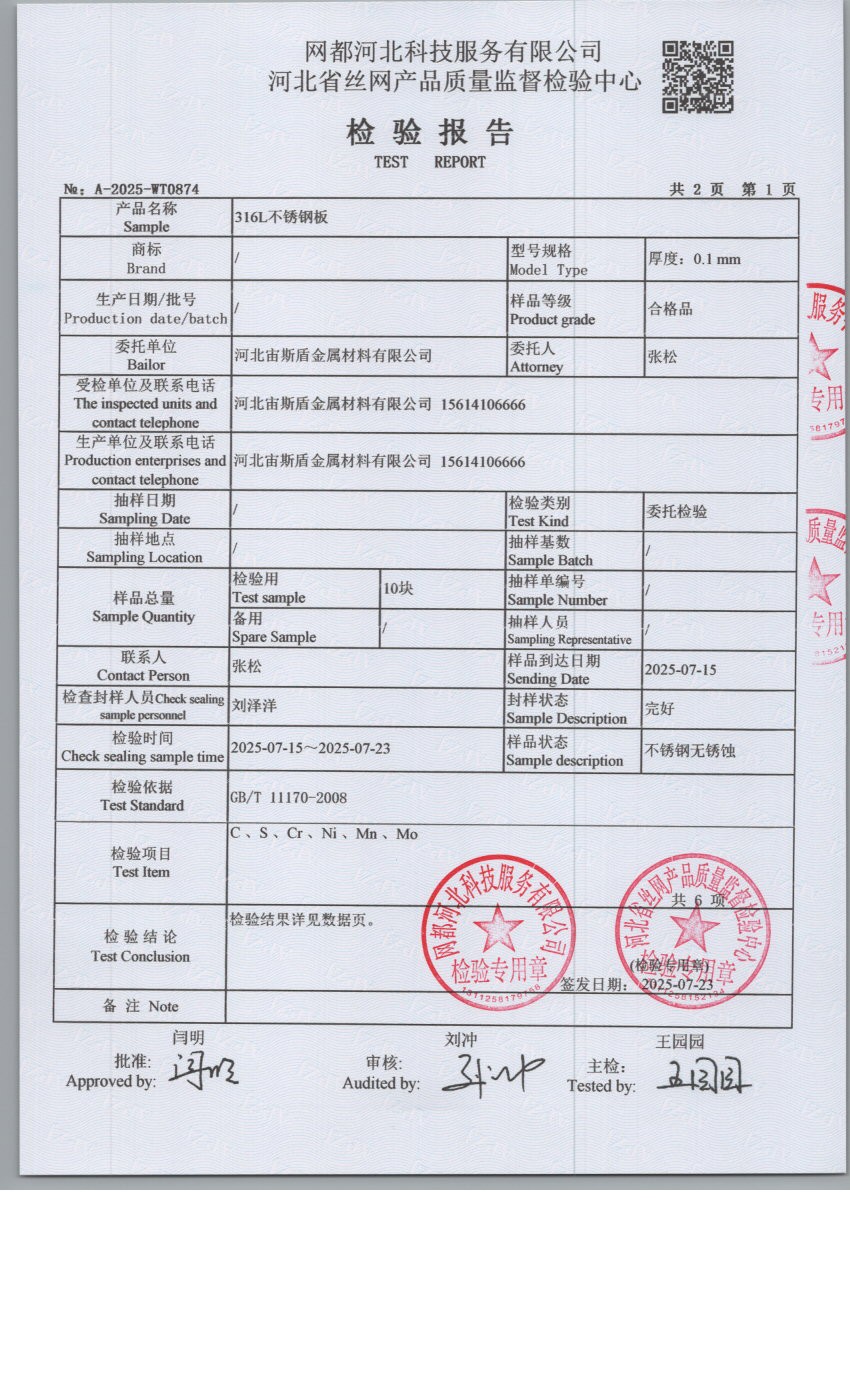 网都河北科技服务有限公司
河北省丝网产品质量监督检验中心
检验报告
TEST REPORT
№: A-2025-WT0874
共 2 页 第 1 页
产品名称
Sample
316L不锈钢板
商标
Brand
/
型号规格
Model Type
厚度：0.1 mm
生产日期/批号
Production date/batch
/
样品等级
Product grade
合格品
委托单位
Bailor
河北宙斯盾金属材料有限公司
委托人
Attorney
张松
受检单位及联系电话
The inspected units and
contact telephone
河北宙斯盾金属材料有限公司 15614106666
生产单位及联系电话
Production enterprises and
contact telephone
河北宙斯盾金属材料有限公司 15614106666
抽样日期
Sampling Date
/
检验类别
Test Kind
委托检验
抽样地点
Sampling Location
/
抽样基数
Sample Batch
/
样品总量
Sample Quantity
检验用
Test sample
10块
抽样单编号
Sample Number
/
备用
Spare Sample
/
抽样人员
Sampling Representative
/
联系人
Contact Person
张松
样品到达日期
Sending Date
2025-07-15
检查封样人员Check sealing
sample personnel
刘泽洋
封样状态
Sample Description
完好
检验时间
Check sealing sample time
2025-07-15～2025-07-23
样品状态
Sample description
不锈钢无锈蚀
检验依据
Test Standard
GB/T 11170-2008
检验项目
Test Item
C 、S 、Cr 、Ni 、Mn 、Mo
共 6 项
检 验 结 论
Test Conclusion
检验结果详见数据页。
(检验专用章)
签发日期： 2025-07-23
网都河北科技服务有限公司
检验专用章
河北省丝网产品质量监督检验中心
检验专用章
备 注 Note
闫明
刘冲
王园园
批准:
Approved by:
闫明
审核:
Audited by:
刘冲
主检:
Tested by:
王园园
服务
专用
质量监
专用